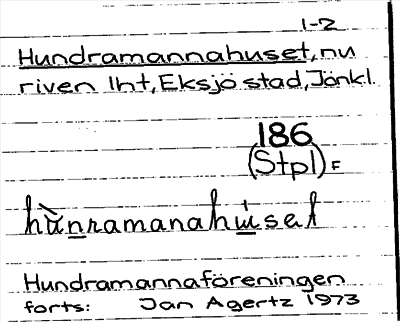 1-2
Hundramannahuset, nu
riven lht, Eksjö stad, Jönk.l.
186
(Stpl) F
hùnramanahu̍set
Hundramannaföreningen
forts: Jan Agertz 1973